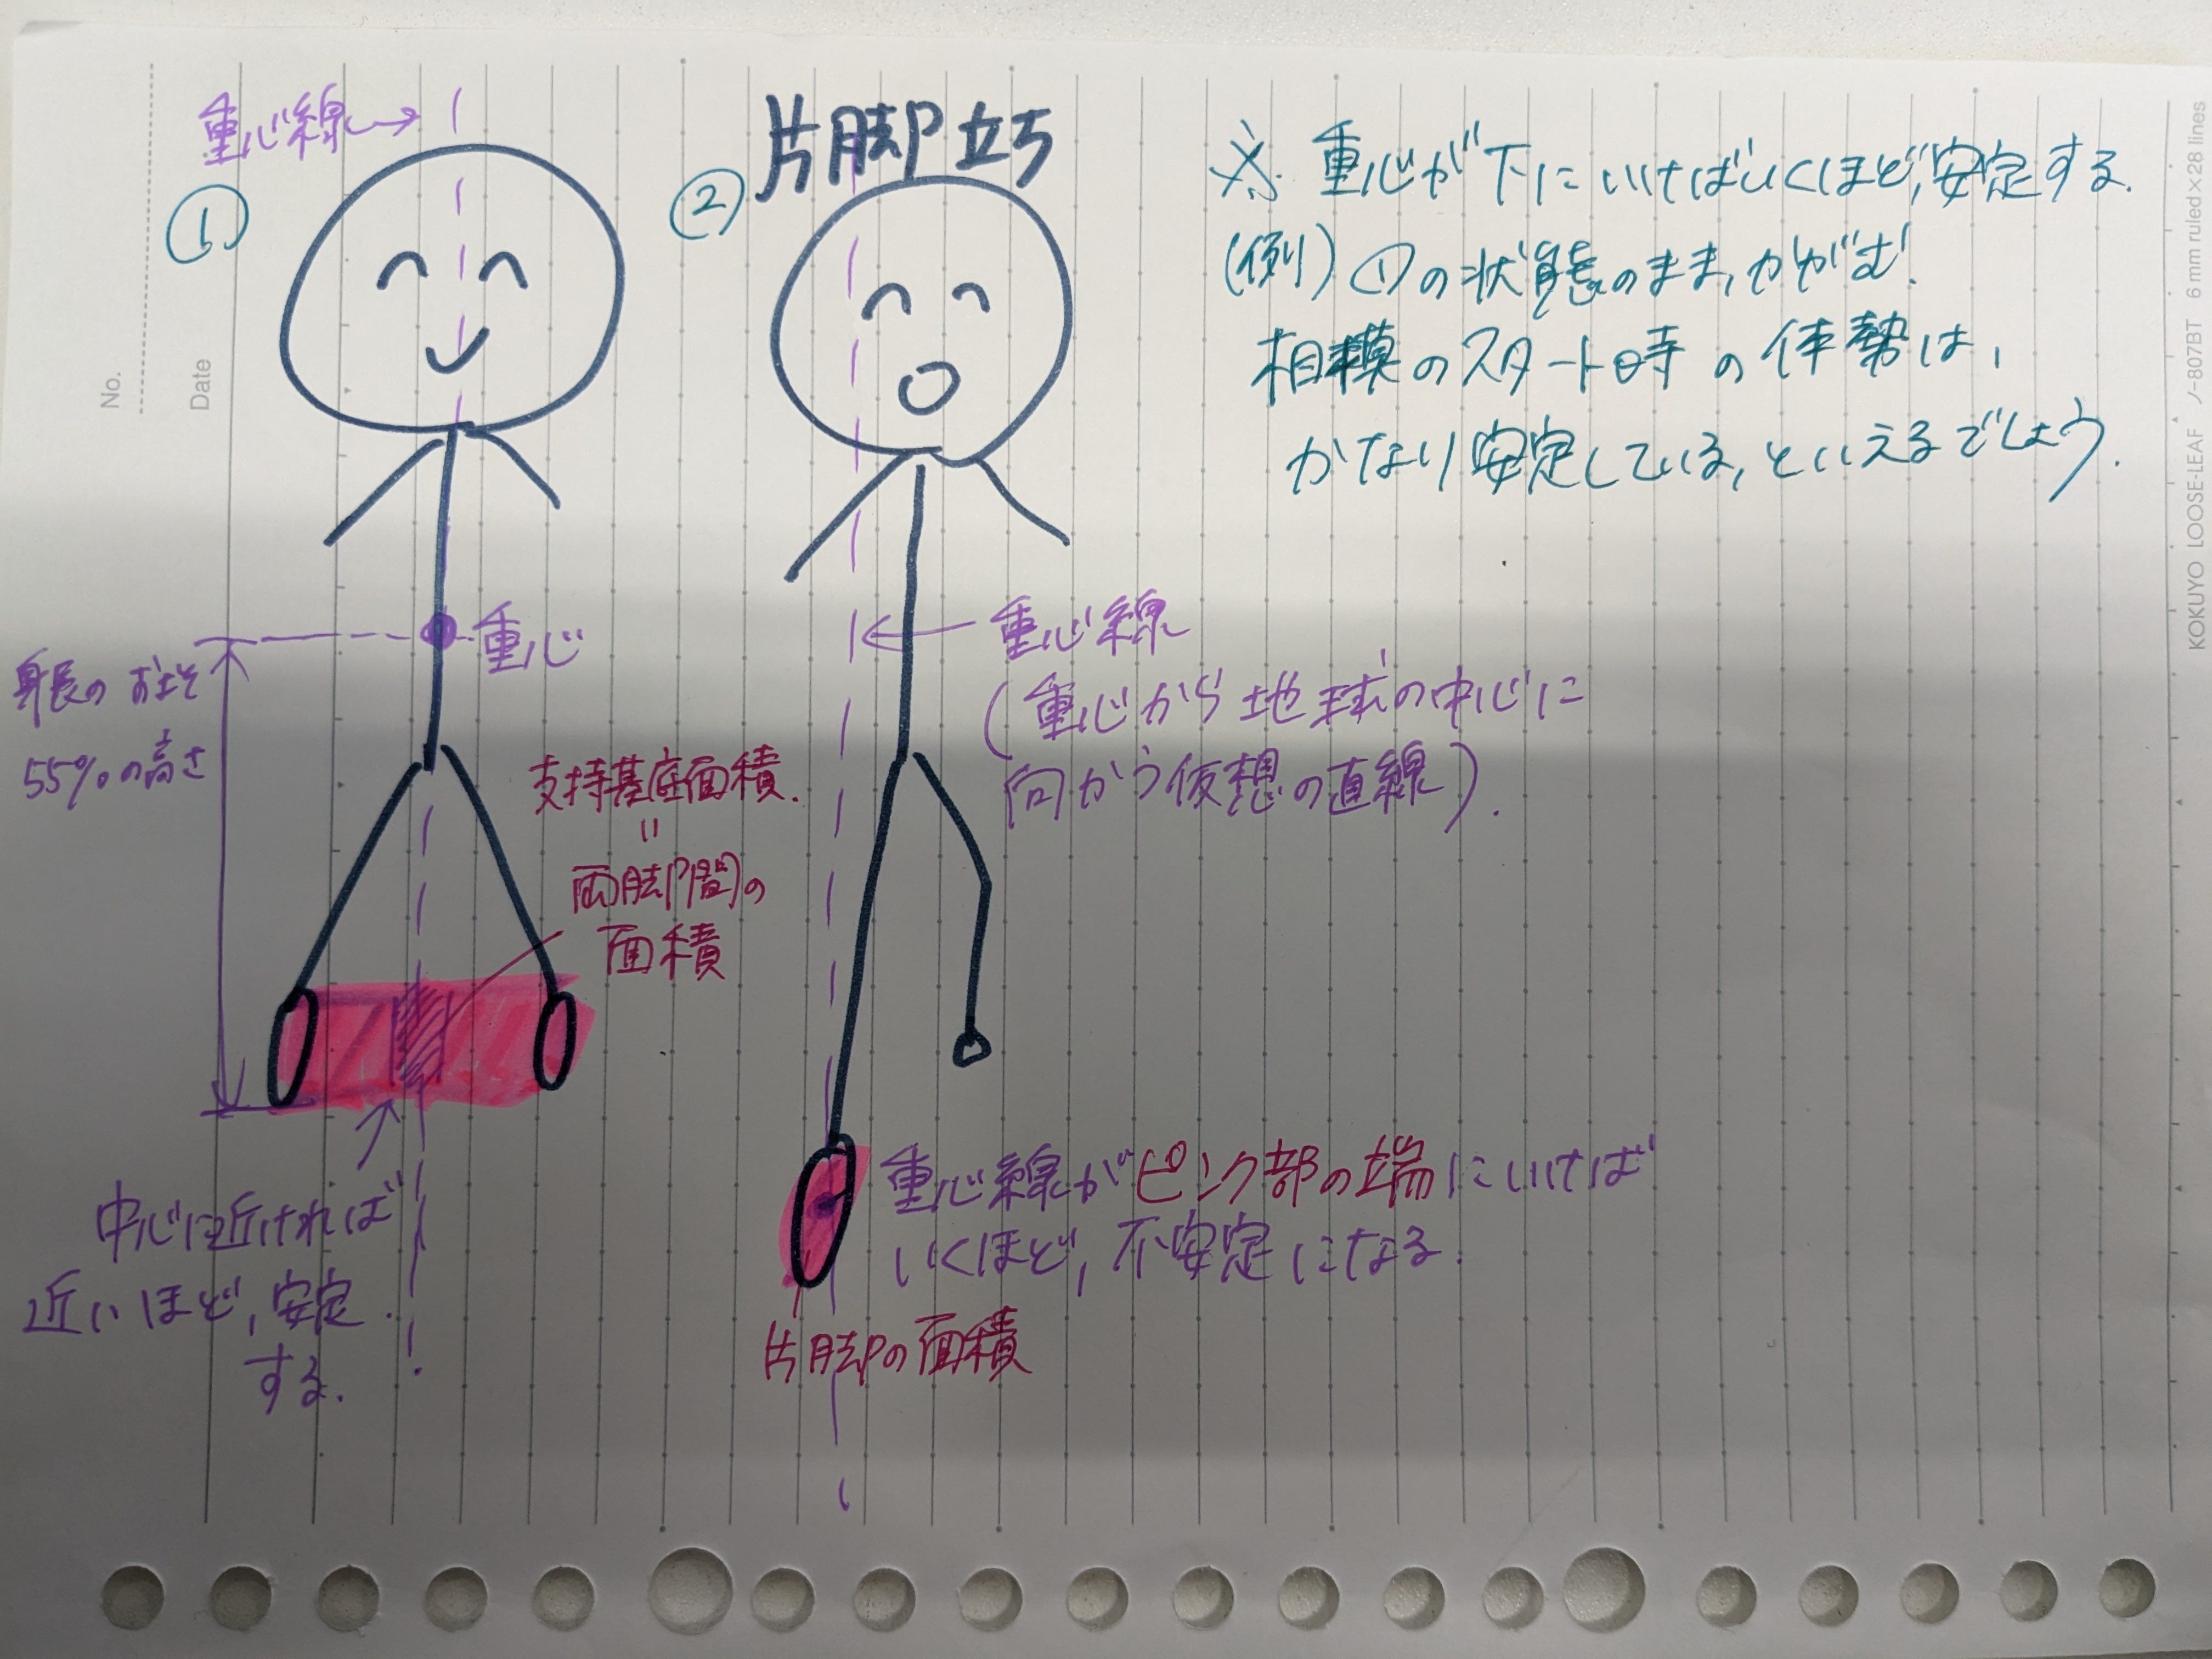 No.
Date
重心線→
①
重心
身長のおよそ
55%の高さ
支持基底面積.
=
両脚間の
面積
中心に近ければ
近いほど,安定
する.
② 片脚立ち
重心線
(重心から地球の中心に
向かう仮想の直線).
重心線がピンク部の端にいけば
いくほど,不安定になる.
片脚の面積
※ 重心が下にいけばいくほど,安定する.
(例)①の状態のまま,かがむ!
相模のスタート時の体勢は,
かなり安定している,といえるでしょう.
KOKUYO LOOSE-LEAF ノ-807BT 6 mm ruled×28 lines